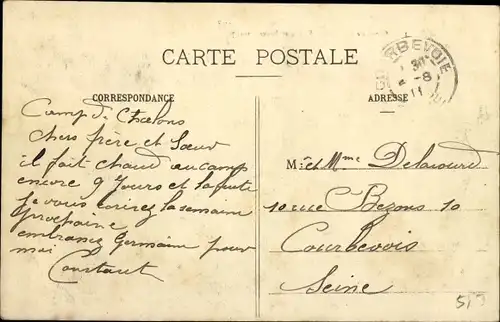 CARTE POSTALE
CORRESPONDANCE
Camp de Chalons
chers frère et Soeur
il fait chaud au camp
encore 9 Jours et la fuite
je vous écrirez la semaine
prochaine
embrassez Germain pour
moi
Constant
COURBEVOIE
30
8
11
ADRESSE
Mr et Mme Delacourt
10 rue Bezons 10
Courbevois
Seine